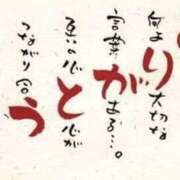 何より大切な
言葉がある…。
の心と心が
つながり合う